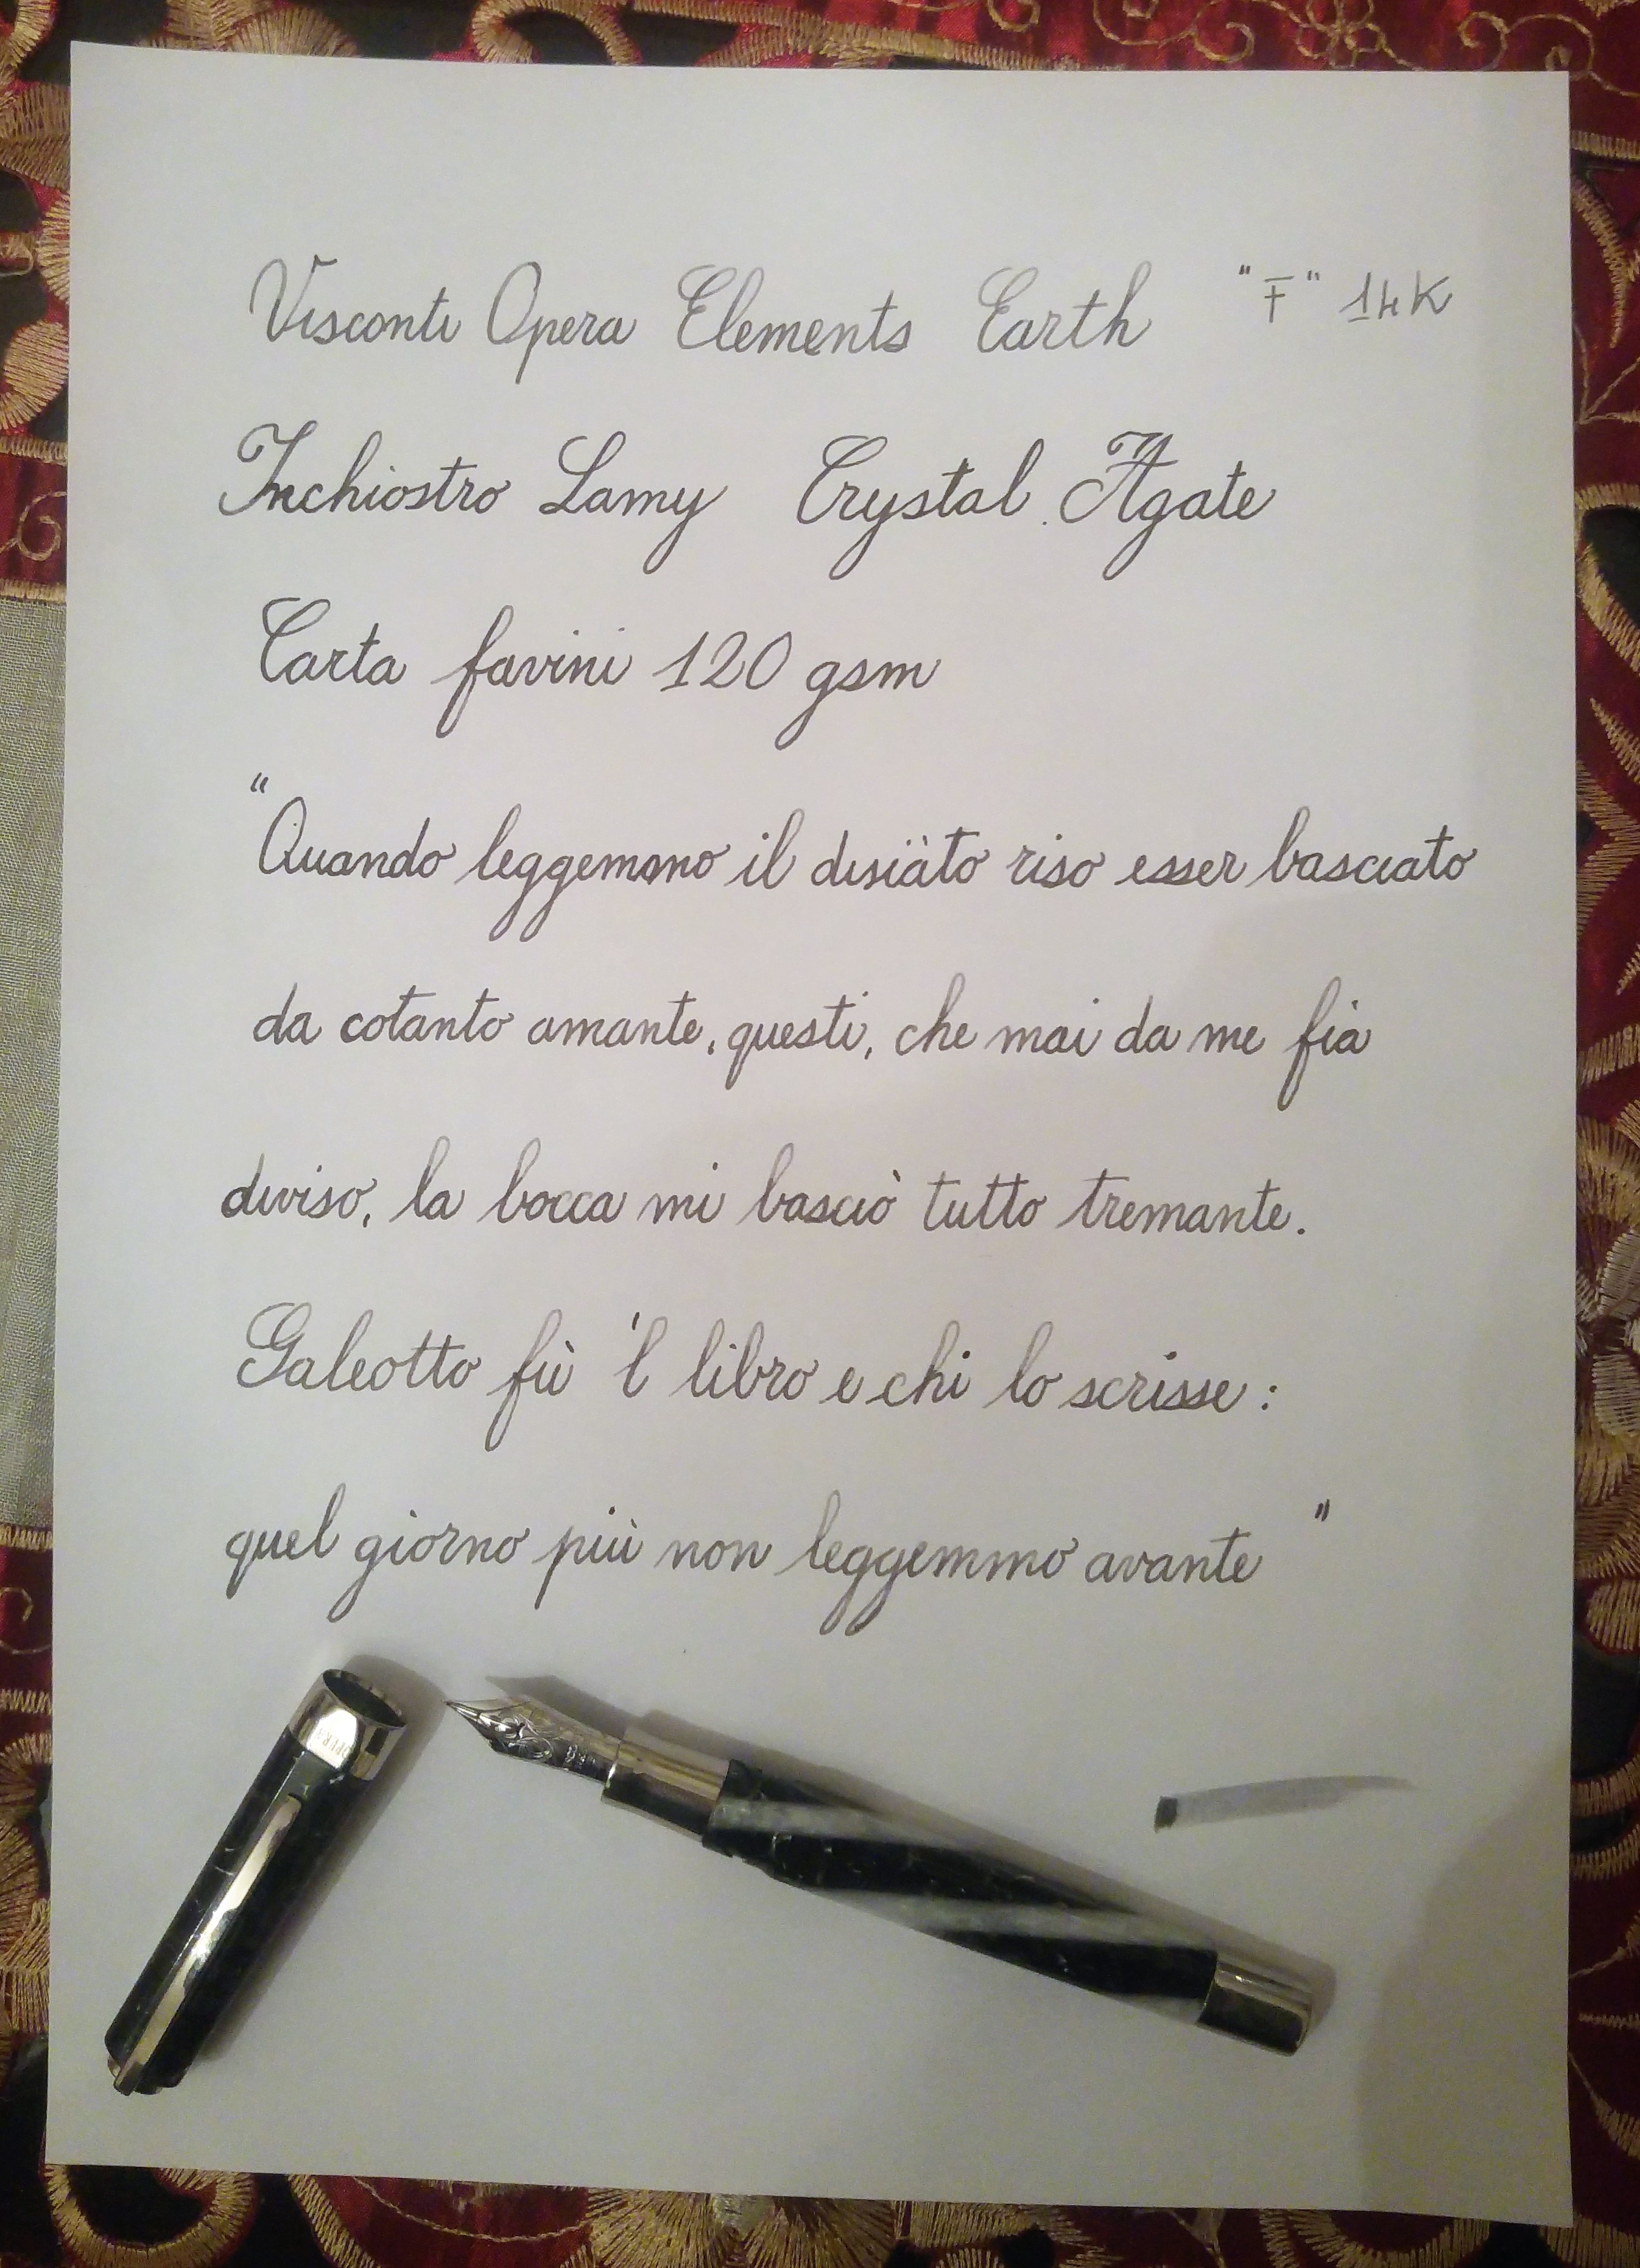 Visconti Opera Elements Earth "F" 14K
Inchiostro Lamy Crystal Agate
Carta favini 120 gsm
"Quando leggemmo il disïato riso esser basciato
da cotanto amante, questi, che mai da me fia
diviso, la bocca mi basciò tutto tremante.
Galeotto fù 'l libro e chi lo scrisse:
quel giorno più non leggemmo avante"
OPERA